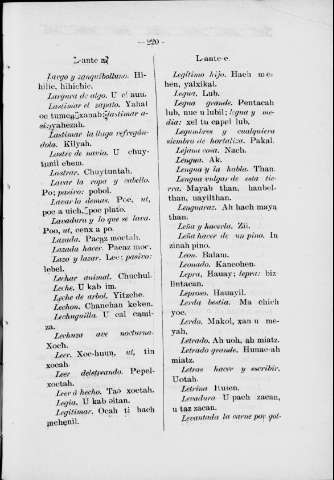 — 220 —
L-ante a.
Largo y zanquibolluno. Hi-
hilic, hihichic.
Largura de algo. U c' auu.
Lastimar el zapato. Yahal
oc tumen xanab; lastimar a-
si: yahezah.
Lastimar la llaga refregán-
dola. Kilyah.
Lastre de navio. U chuy-
tunil chem.
Lastrar. Chuytuntah.
Lavar la ropa y cabello.
Po; pasivo: pobol.
Lavar lo demas. Poe, ut,
poe a uich, poe plato.
Lavadura y lo que se lava.
Poo, ut, cenx a po.
Lazada. Pacaz moctah.
Lazada hacer. Pacaz moc.
Lazo y lazar. Le: pasivo:
lebel.
Lechar animal. Chuchul.
Leche. U kab im.
Leche de arbol. Yitzche.
Lechon. Chanchan keken.
Lechuguilla. U cal cami-
za.
Lechuza ave nocturna.
Xoch.
Leer. Xoc-huun, ut, tin
xocah
Leer deletreando. Pepel-
xoctah.
Leer á hecho. Tao xoctah.
Legia. U kab sitan.
Legitimar. Ocah ti bach
mehenil.
L-ante-e.
Legítimo hijo. Hach me-
hen, yalxikal.
Legua. Lub.
Legua grande. Pentacah
lub, nuc u lubil; legua y me-
dia: xel tu capel lub.
Legumbres y cualquiera
siembra de hortaliza. Pakal.
Lejana cosa. Nach.
Lengua. Ak.
Lengua y la habla. Than.
Lengua vulgar de esta tie-
rra. Mayab than, hanbel-
than, uayilthan.
Lenguaraz. Ah hach maya
than.
Leña y hacerla. Zii.
Leña hacer de un pino. In
zinah pino.
Leon. Balam.
Leonado. Kancohen.
Lepra, Hauay; lepra: biz
lintacan.
Leproso. Hauayil.
Lerda bestia. Ma chich
yoc.
Lerdo. Makol, xan u me-
yah.
Letrado. Ah uoh, ah miatz.
Letrado grande. Hunac-ah
miatz.
Letras hacer y escribir.
Uotah.
Letrina Kuten.
Levadura U pach zacan,
u taz zacan.
Levantada la carne por gol-